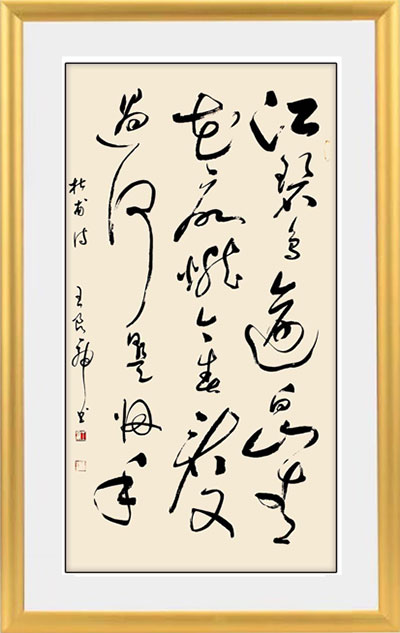 江碧鸟逾白山青
花欲燃今春看又
过何日是归年
杜甫诗
王良 书